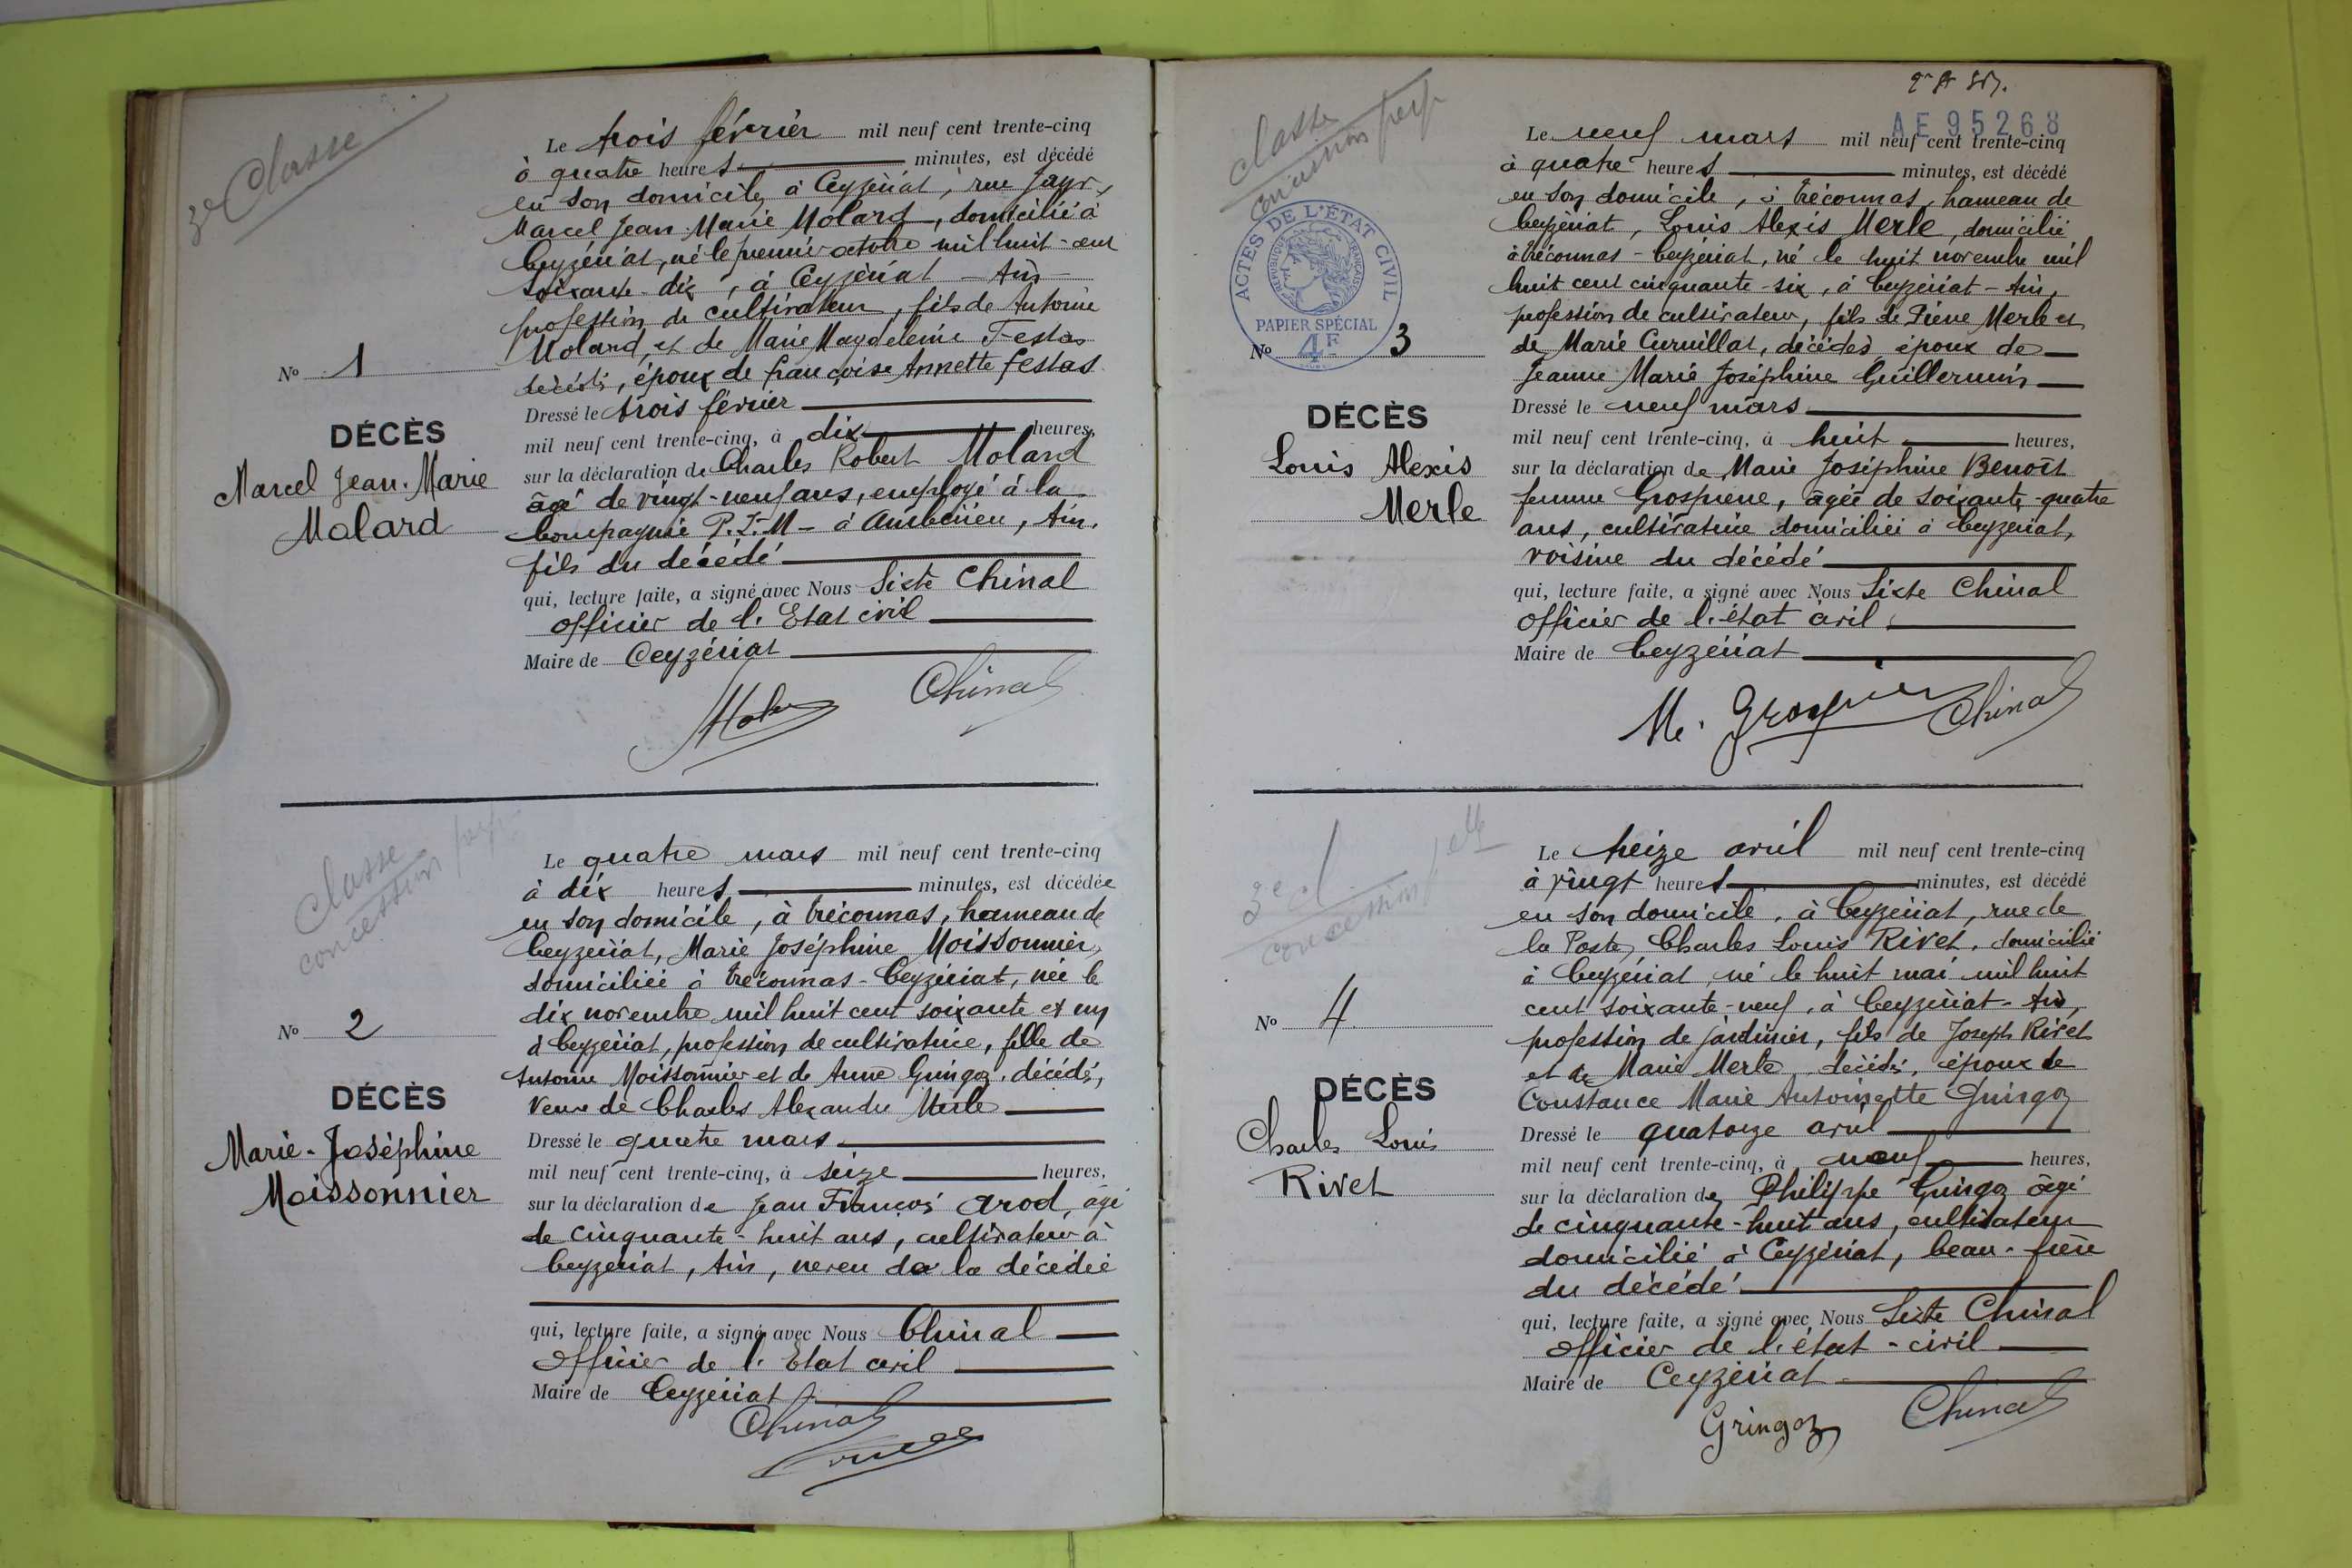 3e Classe
Le trois février mil neuf cent trente-cinq
à quatre heures minutes, est décédé
en son domicile, à Ceyzériat, rue Jayr,
Marcel Jean Marie Molard, domicilié à
Ceyzériat, né le premier octobre mil huit-cent
soixante-dix, à Ceyzériat - Ain -
profession de cultivateur, fils de Antoine
Molard, et de Marie Magdeleine Festas
décédés, époux de Françoise Annette Festas
No 1
DÉCÈS
Marcel Jean-Marie
Molard
Dressé le trois février
mil neuf cent trente-cinq, à dix heures,
sur la déclaration de Charles Robert Molard
âgé de vingt-neuf ans, employé à la
Compagnie P.L.M - à Ambérieu, Ain,
fils du décédé
qui, lecture faite, a signé avec Nous Sixte Chinal
officier de l'Etat civil
Maire de Ceyzériat
Chinal
classe
concession perp
Le quatre mars mil neuf cent trente-cinq
à dix heures minutes, est décédée
en son domicile, à Tréconnas, hameau de
Ceyzériat, Marie Joséphine Moissonnier,
domiciliée à Tréconnas-Ceyzériat, née le
dix novembre mil huit cent soixante et un
à Ceyzériat, profession de cultivatrice, fille de
Antoine Moissonnier et de Anne Guingoz, décédés,
veuve de Charles Alexandre Merle
No 2
DÉCÈS
Marie-Joséphine
Moissonnier
Dressé le quatre mars
mil neuf cent trente-cinq, à seize heures,
sur la déclaration de Jean François Arod, âgé
de cinquante-huit ans, cultivateur à
Ceyzériat, Ain, neveu de la décédée
qui, lecture faite, a signé avec Nous Chinal
officier de l'Etat civil
Maire de Ceyzériat
Chinal
AE 95268
classe
concession perp
Le neuf mars mil neuf cent trente-cinq
à quatre heures minutes, est décédé
en son domicile, à Tréconnas, hameau de
Ceyzériat, Louis Alexis Merle, domicilié
à Tréconnas-Ceyzériat, né le huit novembre mil
huit cent cinquante-six, à Ceyzériat-Ain,
profession de cultivateur, fils de Pierre Merle et
de Marie Curvillat, décédés époux de
Jeanne Marie Joséphine Guillermin
ACTES DE L'ÉTAT CIVIL
RÉPUBLIQUE FRANÇAISE
PAPIER SPÉCIAL
4F
No 3
DÉCÈS
Louis Alexis
Merle
Dressé le neuf mars
mil neuf cent trente-cinq, à huit heures,
sur la déclaration de Marie Joséphine Benoît
femme Grospierre, âgée de soixante-quatre
ans, cultivatrice domiciliée à Ceyzériat,
voisine du décédé
qui, lecture faite, a signé avec Nous Sixte Chinal
officier de l'état civil
Maire de Ceyzériat
Chinal
3e cl
concession
Le treize avril mil neuf cent trente-cinq
à vingt heures minutes, est décédé
en son domicile, à Ceyzériat, rue de
la Poste, Charles Louis Rivet, domicilié
à Ceyzériat, né le huit mai mil huit
cent soixante-neuf, à Ceyzériat-Ain,
profession de jardinier, fils de Joseph Rivet
et de Marie Merle, décédés, époux de
Constance Marie Antoinette Guingoz
No 4
DÉCÈS
Charles Louis
Rivet
Dressé le quatorze avril
mil neuf cent trente-cinq, à neuf heures,
sur la déclaration de Philippe Guingoz âgé
de cinquante-huit ans, cultivateur
domicilié à Ceyzériat, beau-frère
du décédé
qui, lecture faite, a signé avec Nous Sixte Chinal
officier de l'état-civil
Maire de Ceyzériat
Gringoz Chinal